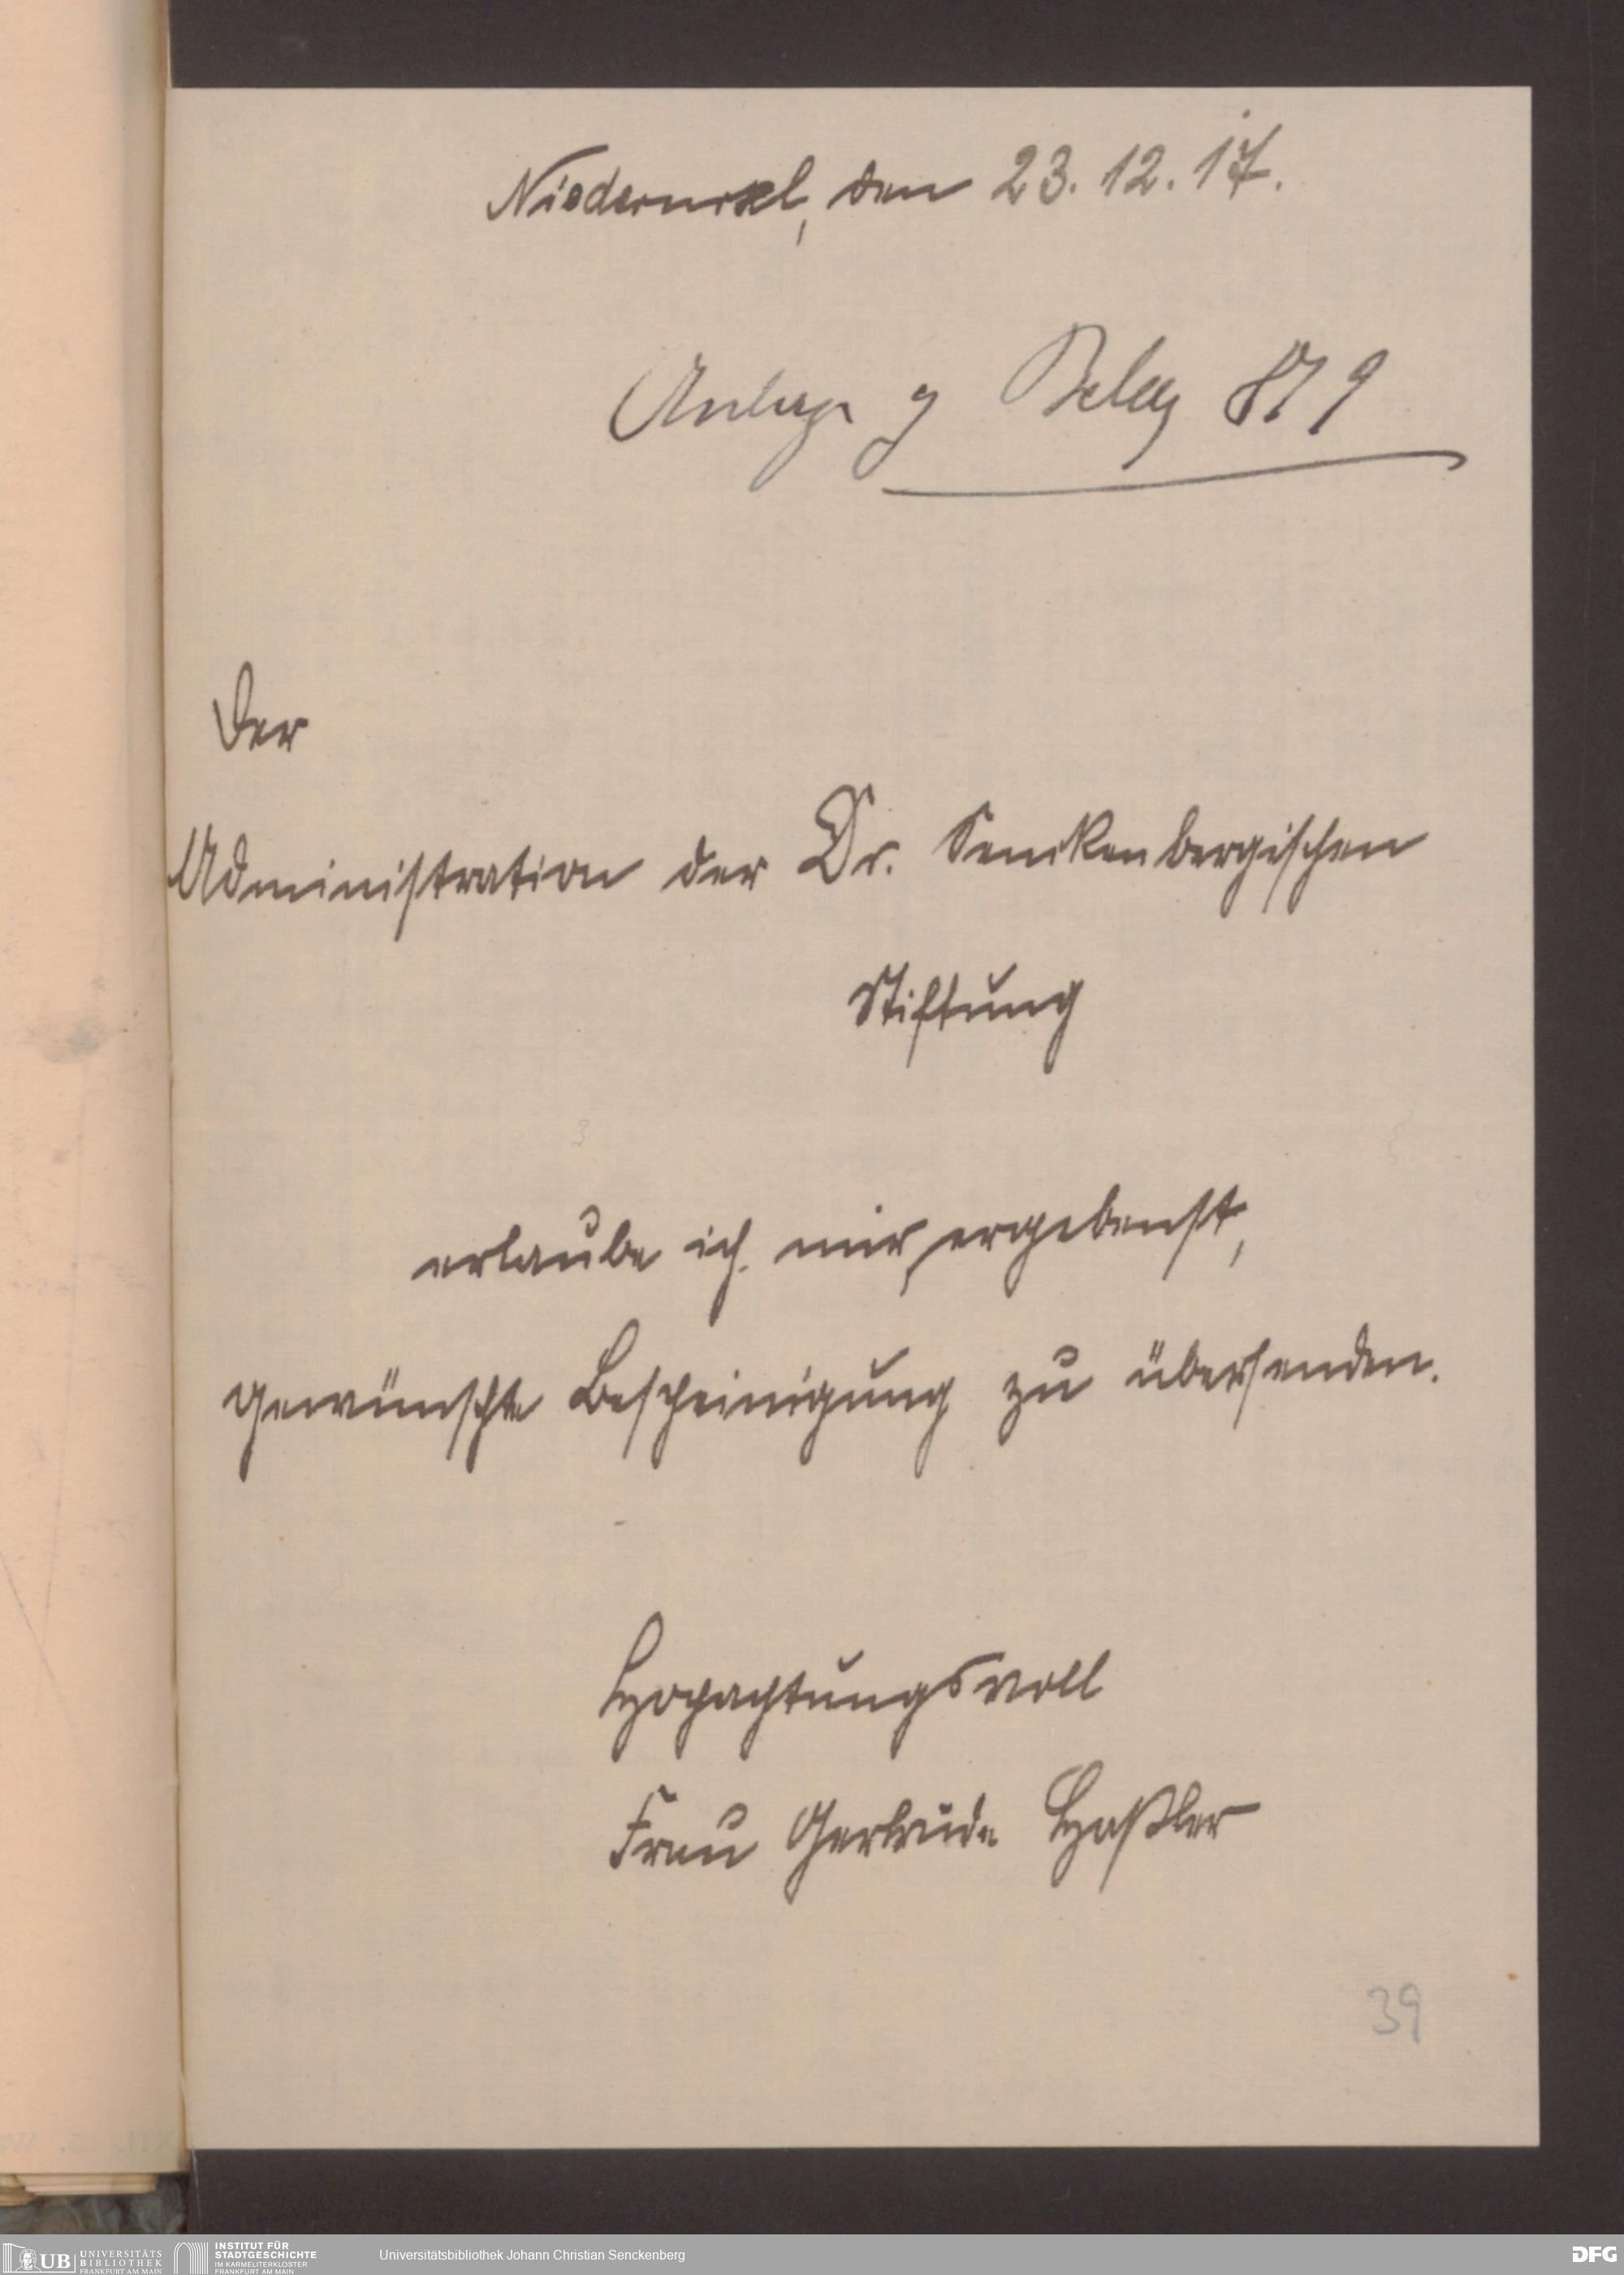 Niederursel, den 23.12.17.
Anlage z Beleg 879
Der
Administration der Dr. Senckenbergischen
Stiftung
erlaube ich mir, ergebenst,
gewünschte Bescheinigung zu übersenden.
Hochachtungsvoll
Frau Gertrude Haßler
39
UB UNIVERSITÄTS
BIBLIOTHEK
FRANKFURT AM MAIN
INSTITUT FÜR
STADTGESCHICHTE
IM KARMELITERKLOSTER
FRANKFURT AM MAIN
Universitätsbibliothek Johann Christian Senckenberg
DFG